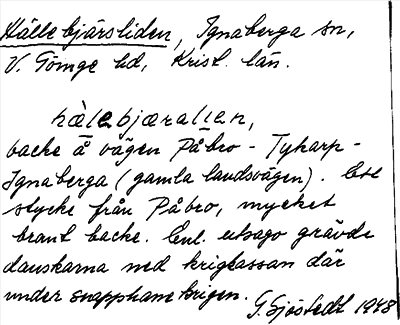 Hällebjärsliden, Ignaberga sn,
V. Göinge hd, Krist. län.
hæ̀lebjæralien,
backe å vägen Påbro - Tykarp -
Ignaberga (gamla landsvägen). Ett
stycke från Påbro, mycket
brant backe. Enl. utsago grävde
danskarna ned krigkassan där
under snapphanekrigen.
G. Sjöstedt 1948